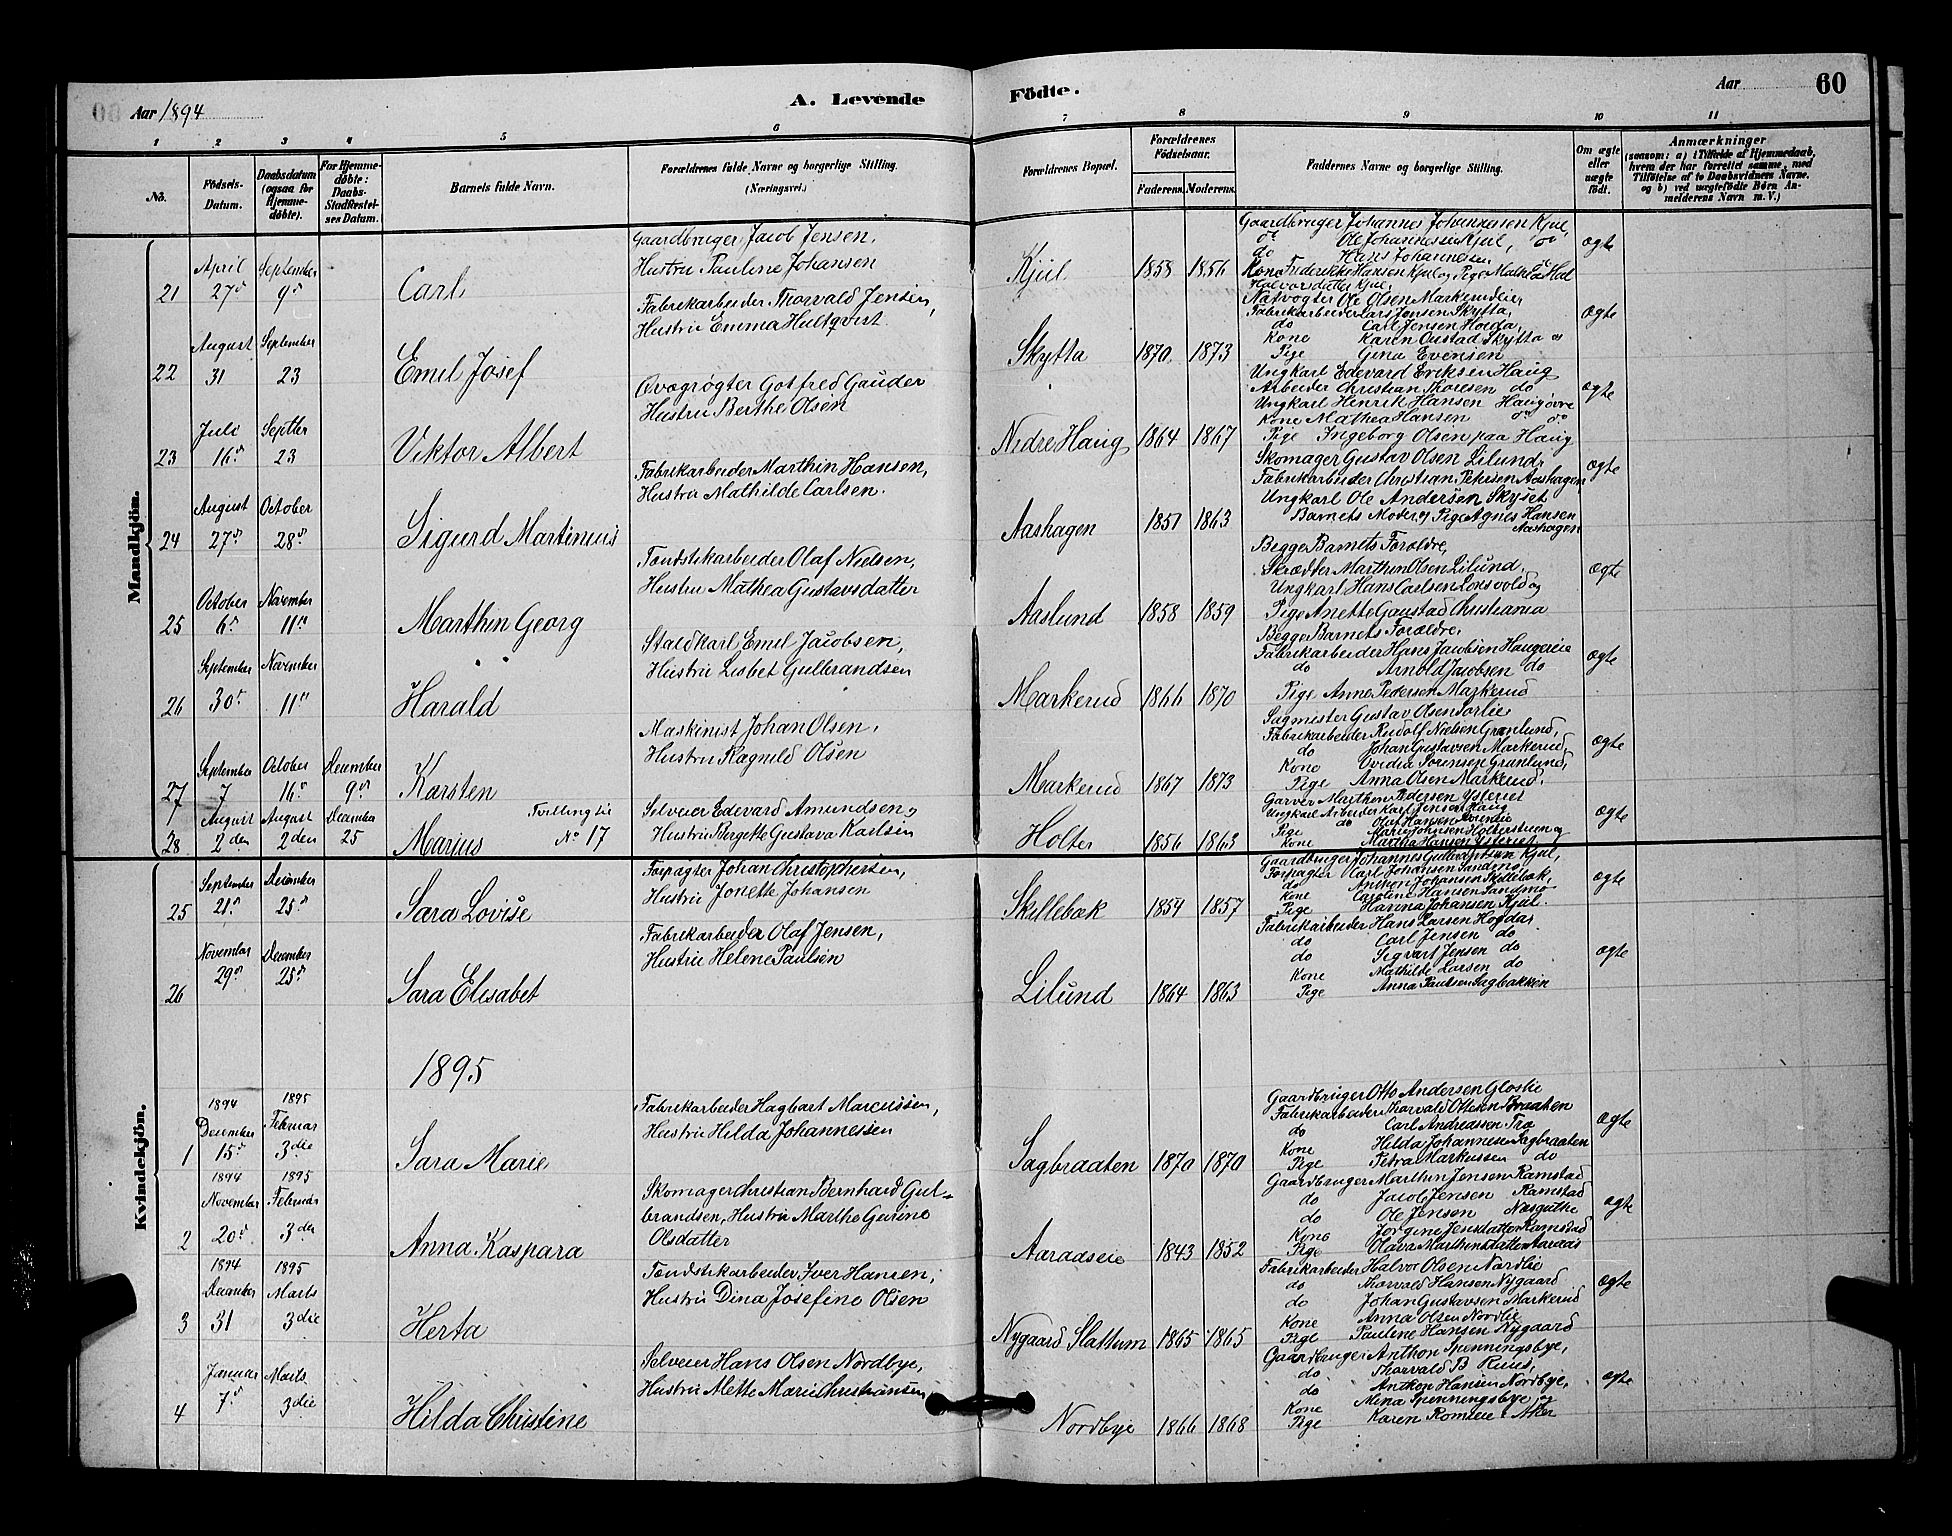 Aar 1894
A. Levende
Födte.
Aar
60
1 2 3 4 5 6 7 8 9 10 11
No.
Födsels-Datum.
Daabsdatum (ogsaa for Hjemme-döbte).
For Hjemme-döbte: Daabs-Stadfæstel-ses Datum.
Barnets fulde Navn.
Forældrenes fulde Navne og borgerlige Stilling. (Næringsvei.)
Forældrenes Bopæl.
Forældrenes Födselsaar.
Faderens. Moderens.
Faddernes Navne og borgerlige Stilling.
Om ægte eller uægte födt.
Anmærkninger
(saasom: a) i Tilfælde af Hjemmedaab, hvem der har forrettet samme, med Tilföielse af to Daabsvidners Navne, og b) ved uægtefödte Börn An-melderens Navn m. V.)
Mandkjön.
21 April 27de September 9de Carl
Gaardbruger Jacob Jensen,
Hustru Pauline Johansen
Kjul 1858 1856
Gaardbruger Johannes Johannesen Kjul,
do Ole Johannessen Kjul, do
do Hans Johannesen
Kone Frederikke Hansen Kjul og Pige Mathea
Halvorsdatter Kjul,
ægte
22 August 31 September 23 Emil Josef
Fabrikarbeider Thorvald Jensen,
Hustru Emma Hultqvist.
Skytta 1870 1873
Natvogter Ole Olsen Markerudeie,
Fabrikarbeider Lars Jensen Skytta,
do Carl Jensen Holda,
Kone Karen Oustad Skytta og
Pige Gina Evensen
ægte
23 Juli 16de Septbr 23 Viktor Albert
Qvægrøgter Gotfred Gauder
Hustru Berthe Olsen
Nedre Haug 1864 1867
Ungkarl Edevard Eriksen Haug
Arbeider Christian Thoresen do
Ungkarl Henrik Hansen Haug øvre
Kone Mathea Hansen do do
Pige Ingeborg Olsen paa Haug
ægte
24 August 27de October 28de Sigurd Martinius
Fabrikarbeider Marthin Hansen,
Hustru Mathilde Carlsen.
Aashagen 1851 1863
Skomager Gustav Olsen Lilund,
Fabrikarbeider Christian Petersen Aashagen,
Ungkarl Ole Andersen Skyset
Barnets Moder og Pige Agnes Hansen
Aashagen
ægte
25 October 6de November 11te Marthin Georg
Tændstikarbeider Olaf Nielsen,
Hustru Mathea Gustavsdatter
Aaslund 1858 1859
Begge Barnets Forældre,
Skrædder Marthin Olsen Lilund,
Ungkarl Hans Carlsen Loxvold og
Pige Anette Gaustad Christiania
ægte
26 September 30te November 11te Harald
Staldkarl Emil Jacobsen,
Hustru Lisbet Gulbrandsen
Markerud 1866 1870
Begge Barnets Forældre,
Fabrikarbeider Hans Jacobsen Haugereie
do Arnold Jacobsen do
Pige Anne Pedersen Markerud
ægte
27 September 7 October 16de December 9de Karsten
Maskinist Johan Olsen,
Hustru Ragnild Olsen
Markerud 1867 1873
Sagmester Gustav Olsen Sorlie,
Fabrikarbeider Rudolf Nielsen Grønlund,
do Johan Gustavsen Markerud,
Kone Ovedia Sørensen Grønlund,
Pige Anna Olsen Markerud.
ægte
28 August 2den August 2den December 25 Marius
Tvilling til No 17
Selveier Edevard Amundsen,
Hustru Bergette Gustava Karlsen
Holter 1856 1863
Garver Marthin Pedersen Ysteriet
Ungkarl Arbeider Karl Jensen Haug
do Olaf Hansen
Pige Marie Johnsen Holterstuen og
Kone Martha Hansen Ysteriet
ægte
Kvindekjön.
25 September 21de December 25de Sara Lovise
Forpagter Johan Christophersen,
Hustru Jonette Johansen
Skillebæk 1854 1857
Gaardbruger Johannes Gulbrandsen Kjul,
Forpagter Carl Johansen Sandmo,
do Anthon Johansen Skillebæk,
Kone Caroline Hansen Sandmo
Pige Hanna Johansen Kjul.
ægte
26 November 29de December 25de Sara Elisabet
Fabrikarbeider Olaf Jensen,
Hustru Helene Paulsen
Lilund 1864 1863
Fabrikarbeider Hans Larsen Hogda,
do Carl Jensen do
do Sigvart Jensen do
Kone Mathilde Larsen do
Pige Anna Paulsen Sagbakken
ægte
1895
1 1894 December 15de 1895 Februar 3die Sara Marie
Fabrikarbeider Hagbart Marcussen,
Hustru Hilda Johannessen
Sagbraaten 1870 1870
Gaardbruger Otto Andersen Gloske
Fabrikarbeider Thorvald Ottesen Braaten
do Carl Andreassen Fra
Kone Hilda Johannesen Sagbraaten
Pige Petra Markussen do
ægte
2 1894 November 20de 1895 Februar 3die Anna Kaspara
Skomager Christian Bernhard Gul-
brandsen, Hustru Marthe Gurine
Olsdatter
Aaraaseie 1843 1852
Gaardbruger Marthin Jensen Ramstad
do Jacob Jensen Ramstad
do Ole Jensen Næsguthe
Kone Jorgine Jensdatter Ramstad
Pige Olava Marthinsdatter Aaraas
ægte
3 1894 December 31 1895 Marts 3die Herta
Tændstikarbeider Iver Hansen,
Hustru Dina Josefine Olsen
Nygaard Slattum 1865 1865
Fabrikarbeider Halvor Olsen Nordlie
do Thorvald Hansen Nygaard
do Johan Gustavsen Markerud
Kone Anna Olsen Nordlie
Pige Pauline Hansen Nygaard
ægte
4 Januar 7de Marts 3die Hilda Christine
Selveier Hans Olsen Nordbye,
Hustru Alette Marie Christiansen
Nordbye 1866 1868
Gaardbruger Anthon Spenningsbye,
do Thorvald B Ruud,
do Anthon Hansen Nordbye,
Kone Mina Spenningsbye og
Pige Karen Romseie i Aker
ægte